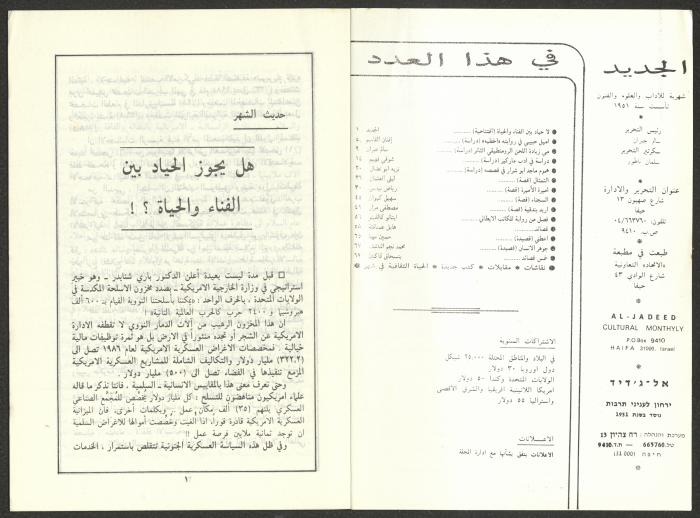 الجديد
شهرية للآداب والعلوم والفنون
تأسست سنة ١٩٥١
رئيس التحرير
سالم جبران
سكرتير التحرير
سلمان ناطور
عنوان التحرير والادارة
شارع صهيون ١٣
حيفا
تلفون: ٠٤/٦٦٣٧٦٠
ص.ب. ٩٤١٠
طبعت في مطبعة
«الاتحاد» التعاونية
شارع الوادي ٤٣
حيفا
AL-JADEED
CULTURAL MONTHLY
P.O.Box 9410
HAIFA 31000, Israel
אל-ג'דיד
ירחון לעניני תרבות
נוסד בשנת 1951
מערכת והנהלה: רח' צהיון 13
טל. 663760 — ת.ד. 9410
חיפה (31 000)
في هذا العدد
● لا حياد بين الفناء والحياة (افتتاحية) الجديد ١
● اميل حبيبي في روايته «اخطيه» (دراسة) افنان القاسم
● من زيادة اللحن الرومنطيقي الثائر (دراسة) سالم جبران
● دراسة في ادب ماركيز (دراسة) شوقي قسيم ١٤
● هموم ماجد ابو شرار في قصصه (دراسة) نزيه ابو نضال ٢٠
● التمثال (قصة)
● اميرة الأميرة (قصة) رياض بيدس ٣٠
● السجناء (قصة) سهيل كيوان
● اريد بندقية (قصة) مصطفى مرار ٤١
● فصل من رواية للكاتب الايطالي
● قصائد
● اعطني (قصيدة) حسين مهنا
● جوهر الانسان (قصيدة)
● خمس قصائد
● نقاشات ● مقابلات ● كتب جديدة ● الحياة الثقافية في شهر ●
الاشتراكات السنوية
في البلاد والمناطق المحتلة ٢٥,٠٠٠ شيكل
دول اوروبا ٣٠ دولار
الولايات المتحدة وكندا ٥٠ دولار
امريكا اللاتينية افريقيا والشرق الاقصى
واستراليا ٥٥ دولار
الاعلانات
الاعلانات يتفق بشأنها مع ادارة المجلة
حديث الشهر
هل يجوز الحياد بين
الفناء والحياة ؟ !
□ قبل مدة ليست بعيدة أعلن الدكتور باري شنايدر ـ وهو خبير
استراتيجي في وزارة الخارجية الامريكية ـ بصدد مخزون الاسلحة المكدسة في
الولايات المتحدة ، بالحرف الواحد : «يمكننا بأسلحتنا النووية القيام بـ ٦٠٠ ألف
هيروشيما و ٢٤٠٠ حرب كالحرب العالمية الثانية» !
ان هذا المخزون الرهيب من آلات الدمار النووي لا تقطفه الادارة
الامريكية عن الشجر أو تجده منثوراً في الارض بل هو ثمرة توظيفات مالية
خيالية . فمخصصات الاغراض العسكرية الامريكية لعام ١٩٨٦ تصل الى
(٣٢٢,٢) مليار دولار والتكاليف الشاملة للمشاريع العسكرية الامريكية
المزمع تنفيذها في الفضاء تصل الى (٥٠٠) مليار دولار .
وحتى نعرف معنى هذا بالمقاييس الانسانية ـ السلمية ، فاننا نذكر ما قاله
علماء امريكيون مناهضون للتسلح : كل مليار دولار يخصص للمجمع الصناعي
العسكري يلتهم (٣٥) ألف مكان عمل . وبكلمات أخرى، فأن الميزانية
العسكرية الامريكية قادرة فوراً، اذا ألغيت وخصصت أموالها للاغراض السلمية
ان توجد ثمانية ملايين فرصة عمل !!
وفي ظل هذه السياسة العسكرية الجنونية تتقلص باستمرار ، الخدمات
١